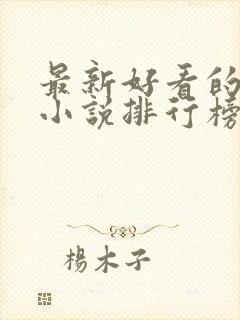 最新好看的
小说排行榜
楊木子